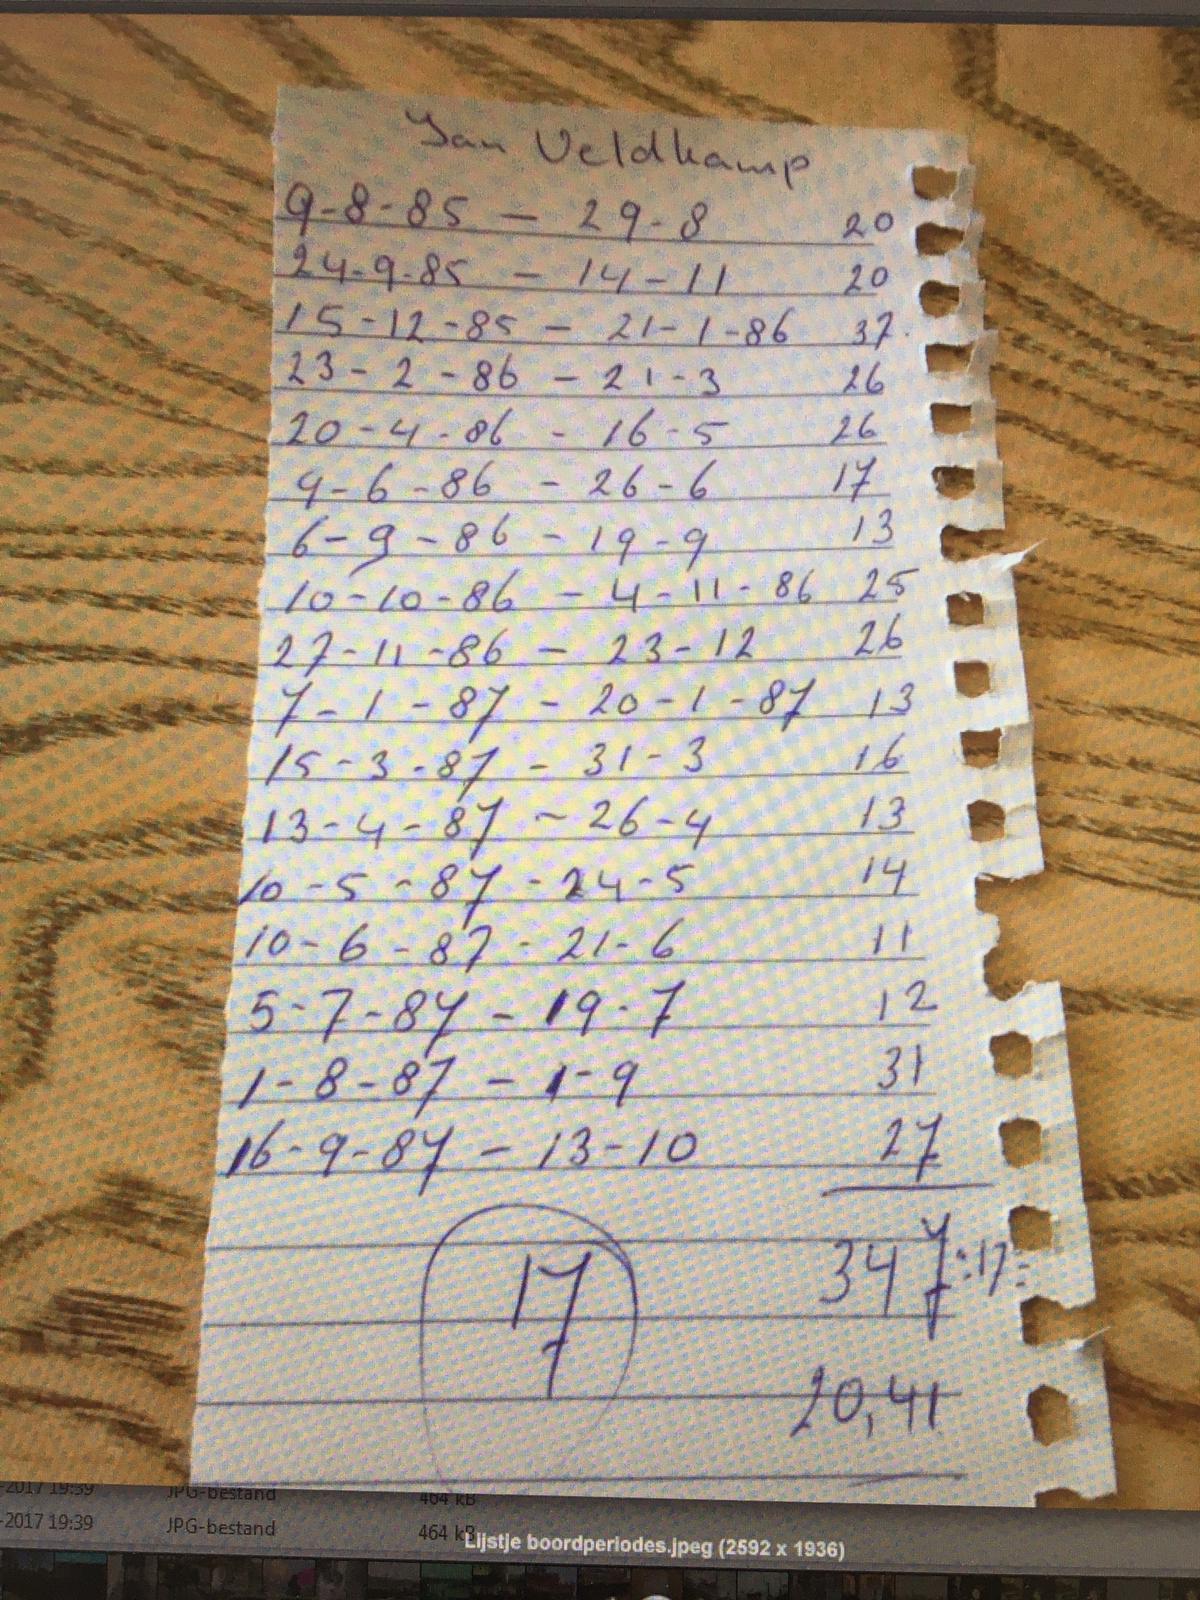 Jan Veldkamp
9-8-85 - 29-8 20
24-9-85 - 14-11 20
15-12-85 - 21-1-86 37.
23-2-86 - 21-3 26
20-4-86 - 16-5 26
9-6-86 - 26-6 17
6-9-86 - 19-9 13
10-10-86 - 4-11-86 25
27-11-86 - 23-12 26
7-1-87 - 20-1-87 13
15-3-87 - 31-3 16
13-4-87 - 26-4 13
10-5-87 - 24-5 14
10-6-87 - 21-6 11
5-7-87 - 19-7 12
1-8-87 - 1-9 31
16-9-87 - 13-10 27
17 347:17=
20,41
-2017 19:39 JPG-bestand 464 kB
-2017 19:39 JPG-bestand 464 kB
Lijstje boordperiodes.jpeg (2592 x 1936)